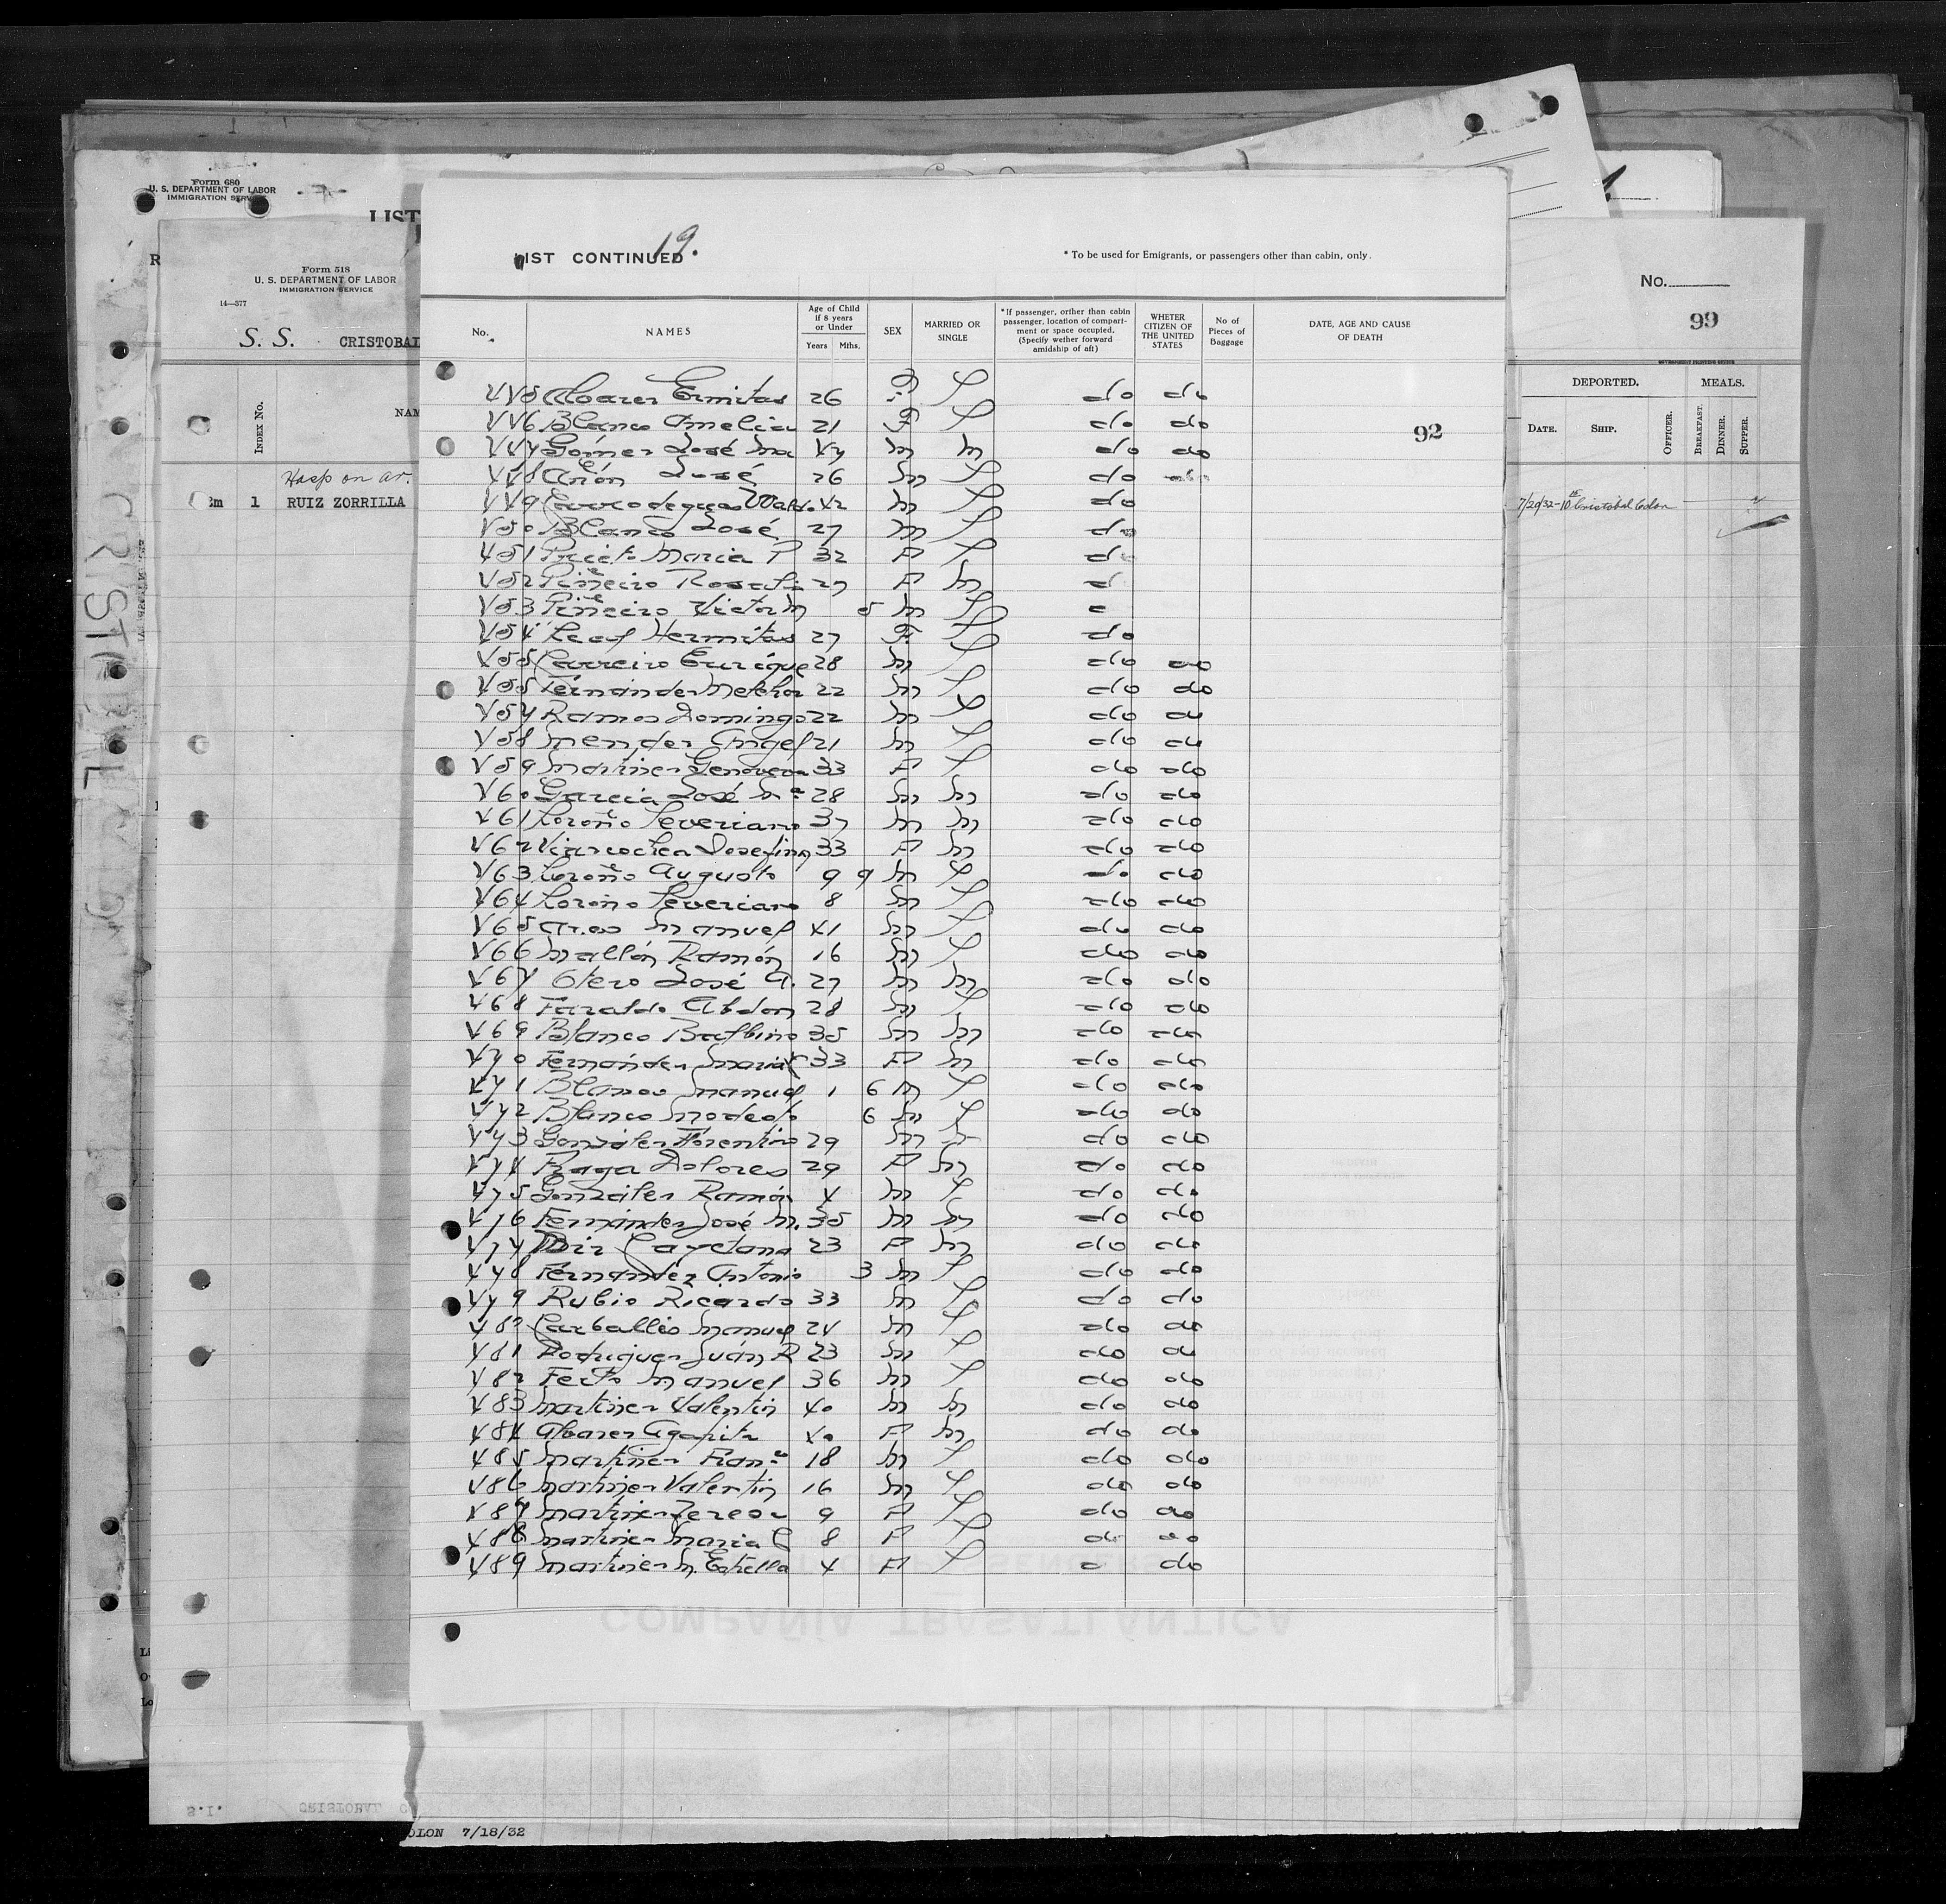 Form 680
U. S. DEPARTMENT OF LABOR
IMMIGRATION SERVICE
LIST
Form 518
U. S. DEPARTMENT OF LABOR
IMMIGRATION SERVICE
14—377
S. S. CRISTOBAL
INDEX No.
NAM
Hosp on ar.
1 RUIZ ZORRILLA
LIST CONTINUED 19.
* To be used for Emigrants, or passengers other than cabin, only.
No. NAMES Age of Child if 8 years or Under Years Mths. SEX MARRIED OR SINGLE * If passenger, orther than cabin passenger, location of compartment or space occupied. (Specify wether forward amidship of aft) WHETER CITIZEN OF THE UNITED STATES No of Pieces of Baggage DATE, AGE AND CAUSE OF DEATH
92
445 Alvarez Ermitas 26 F S do do
446 Blanco Amelia 21 F S do do
447 Gómez José Ma 47 m m do do
448 José 26 m S do do
449 42 m S do
450 Blanco José 27 m S do
451 Prieto Maria P 32 F S do
452 Piñeiro 27 F m d
453 Piñeiro Victor M 5 m S
454 Leal Hermitas 27 F S do
455 Carreiro Enrique 28 m S do do
455 Fernandez Melchor 22 m S do do
457 Ramos Domingo 22 m S do do
458 Mendez Angel 21 m S do do
459 Martinez Genoveva 33 F S do do
460 Garcia José Mª 28 m m do do
461 Loroño Severiano 37 m m do do
462 Josefina 33 F m do do
463 Loroño Augusto 9 9 m S do do
464 Loroño Severiano 8 m S do do
465 Manuel 41 m S do do
466 Mallón Ramón 16 m S do do
467 Otero José A. 27 m m do do
468 Faraldo Abdon 28 m S do do
469 Blanco Balbino 35 m m do do
470 Fernández Maria C 33 F m do do
471 Blanco Manuel 1 6 m S do do
472 Blanco Modesto 6 m S do do
473 González Florentino 29 m do do
474 Fraga Dolores 29 F m do do
475 González Ramón 4 m S do do
476 Fernández José M. 35 m m do do
477 Cayetana 23 F m do do
478 Fernandez Antonio 3 m S do do
479 Rubio Ricardo 33 m S do do
480 Carballes Manuel 24 m S do do
481 Rodriguez Juán R 23 m S do do
482 Manuel 36 m S do do
483 Martinez Valentin 40 m m do do
484 Alvarez Agapita 40 F m do do
485 Martinez Franco 18 m S do do
486 Martinez Valentin 16 m S do do
487 Martinez Teresa 9 F S do do
488 Martinez Maria C 8 F S do do
489 Martinez M. Estrella 4 F S do
COMPAÑÍA TRASATLANTICA
No.
99
DEPORTED. MEALS.
DATE. SHIP. OFFICER. BREAKFAST. DINNER. SUPPER.
7/20/32 - Cristobal Colon
OLON 7/18/32